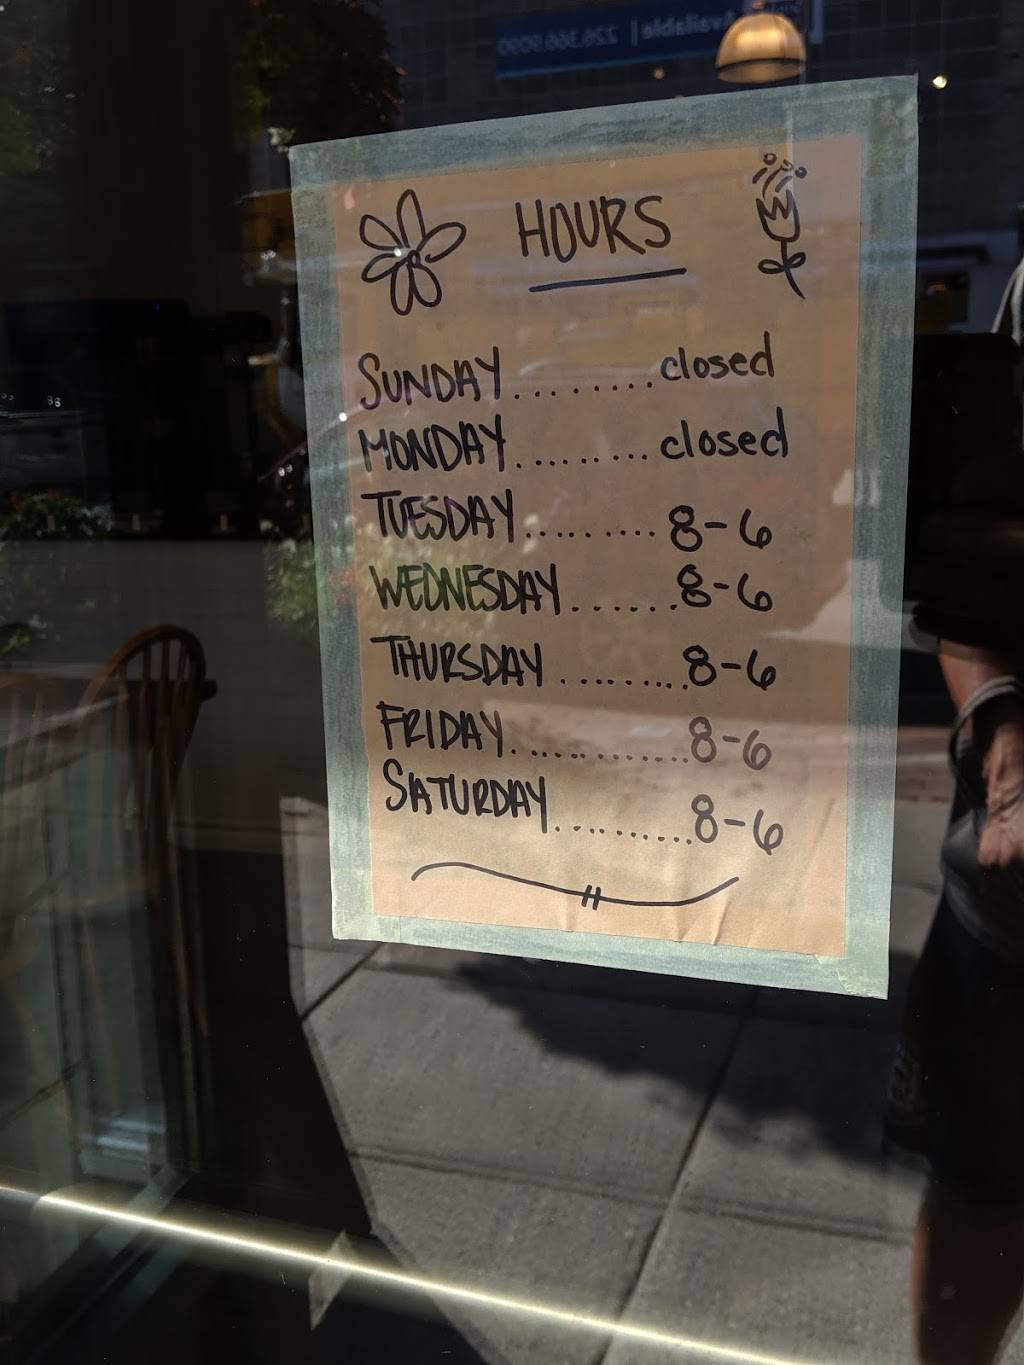 Available | 226.366.9090
HOURS
SUNDAY ........ closed
MONDAY ......... closed
TUESDAY .......... 8-6
WEDNESDAY ....... 8-6
THURSDAY ......... 8-6
FRIDAY .............. 8-6
SATURDAY .......... 8-6